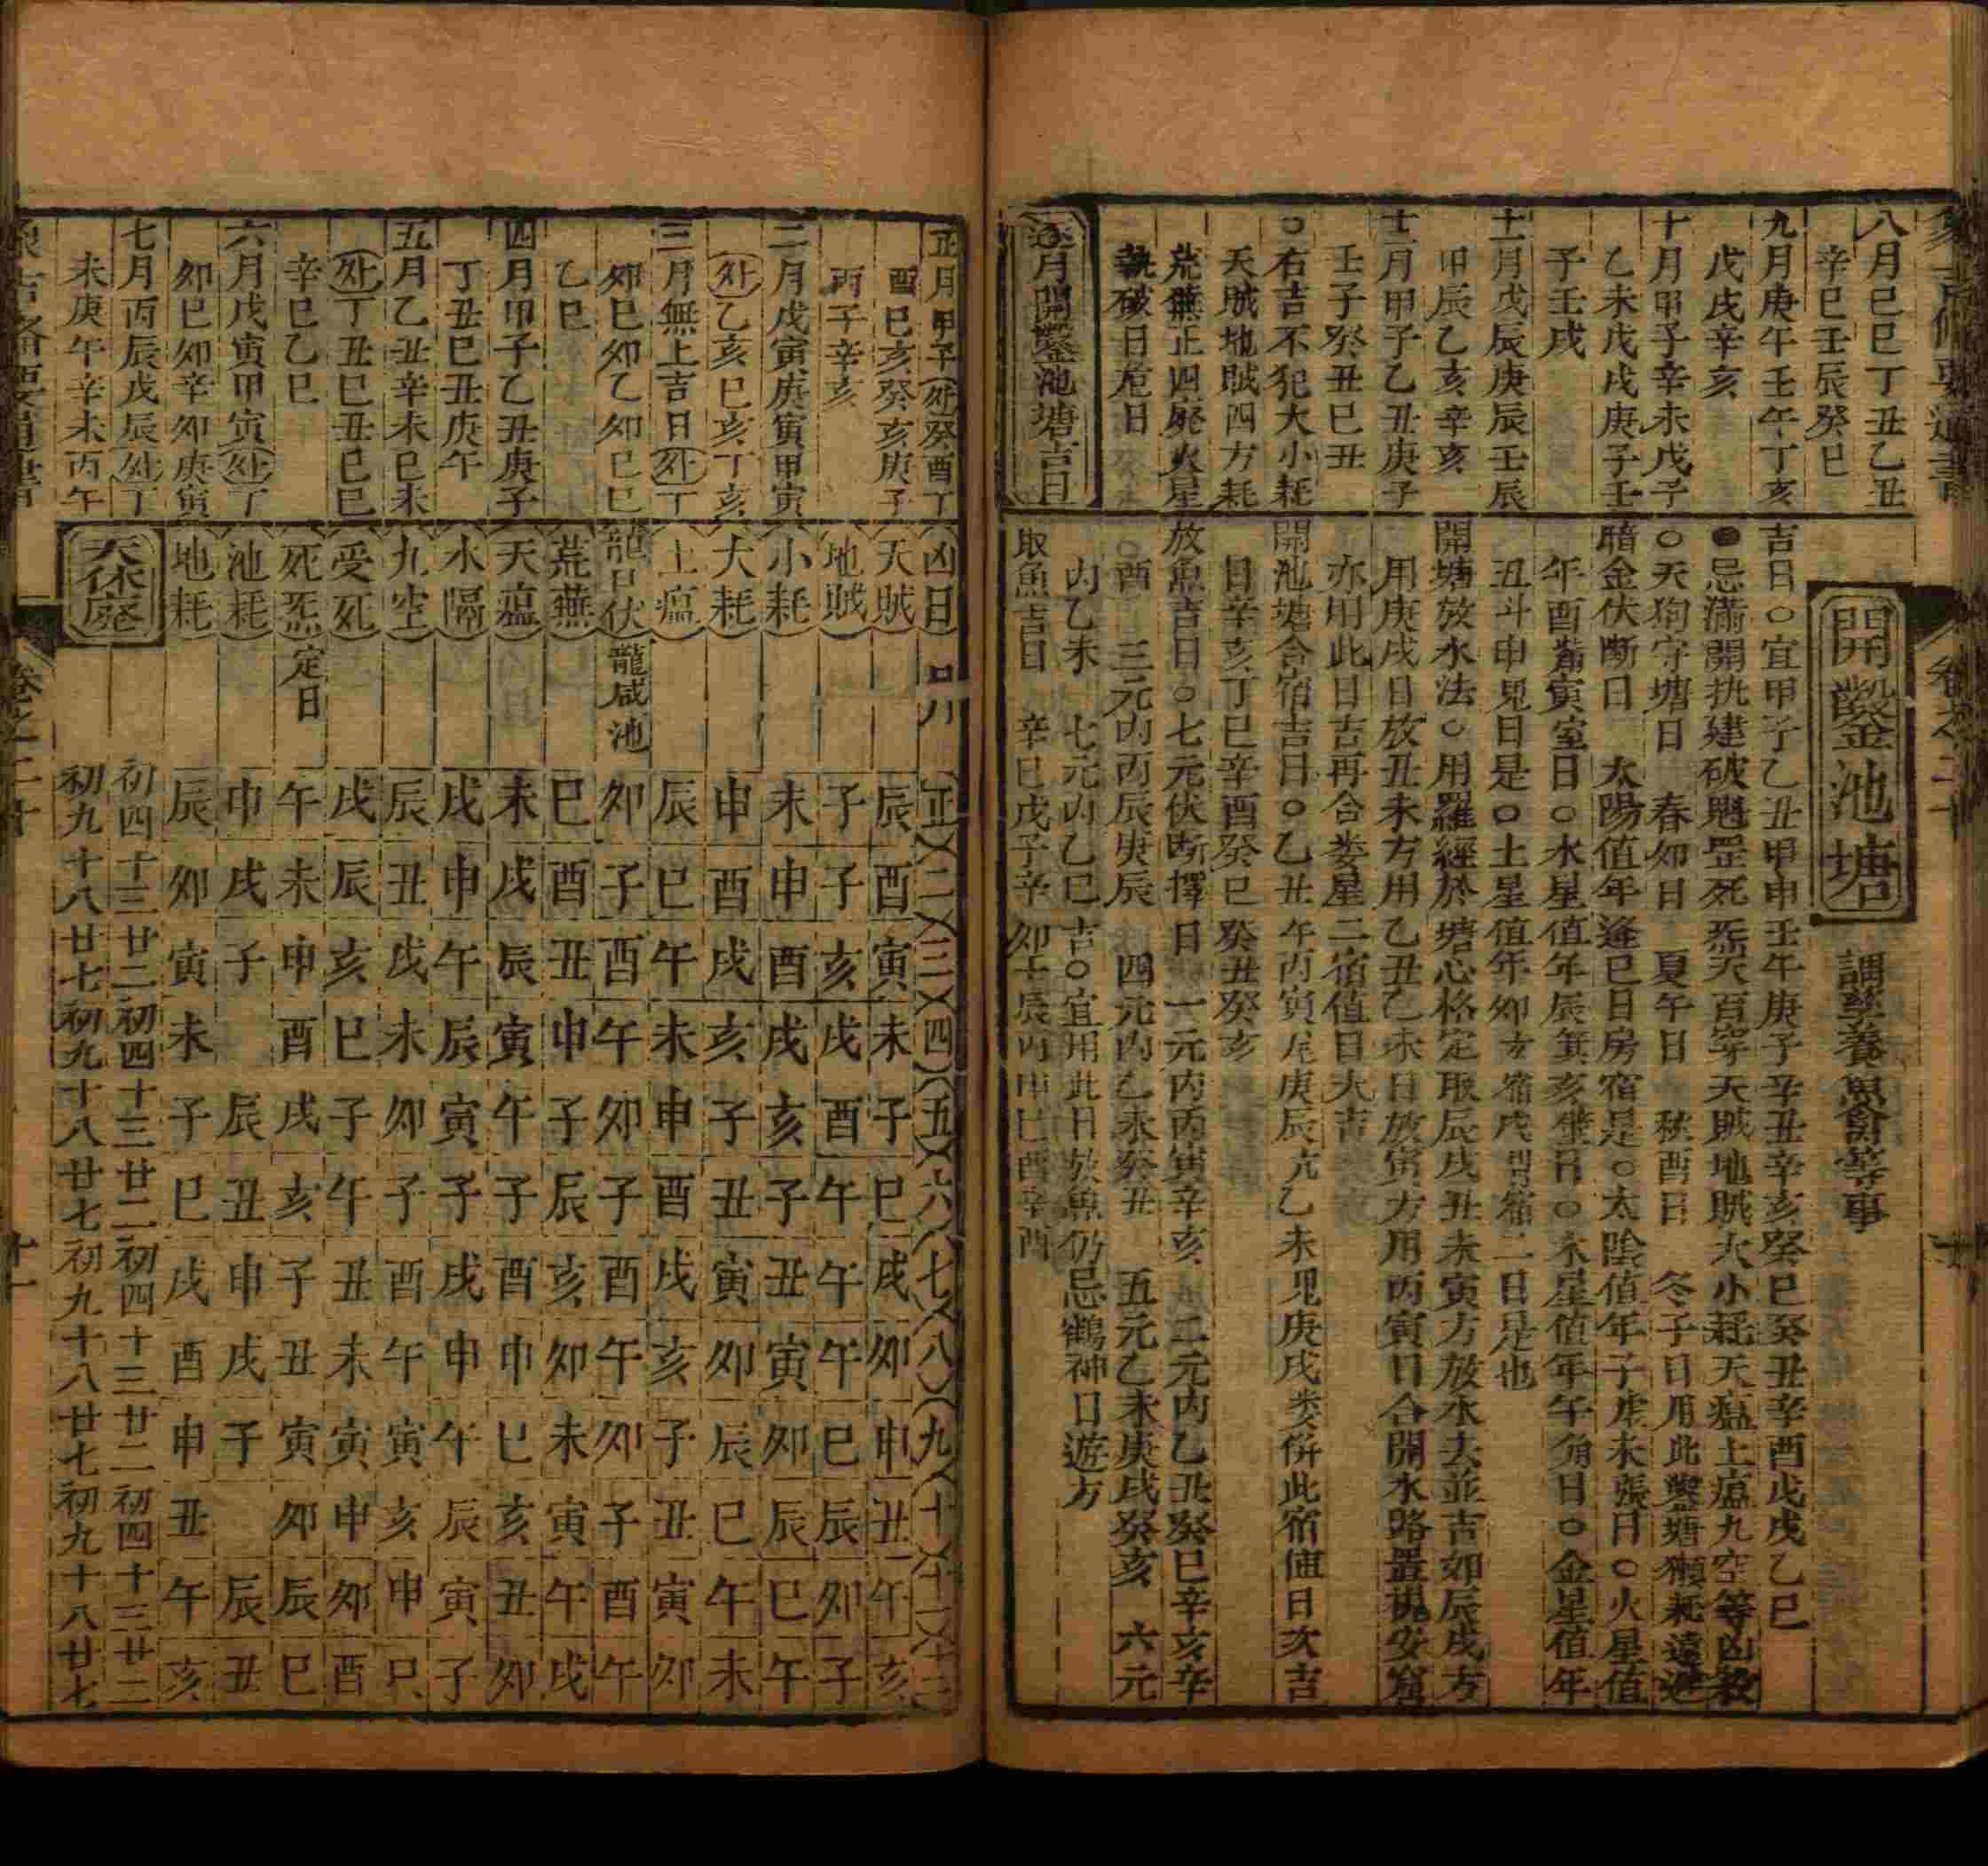 八月己巳丁丑乙丑
辛巳壬辰癸巳
九月庚午壬午丁亥
戊戌辛亥
十月甲子辛未戊子
乙未戊戌庚子壬
子壬戌
十一月戊辰庚辰壬辰
甲辰乙亥辛亥
十二月甲子乙丑庚子
壬子癸丑巳丑
○右吉不犯大小耗
天賊地賊四方耗
荒蕪正四廢火星
執破日危日
逐月開鑿池塘吉日
開鑿池塘
吉日○宜甲子乙丑甲申壬午庚子辛丑辛亥癸巳癸丑辛酉戊戌乙巳
●忌滿開執建破魁罡死炁天百穿天賊地賊大小耗天瘟土瘟九空等凶
○天狗守塘日 春卯日 夏午日 秋酉日 冬子日用此鑿塘獺耗遠
暗金伏断日 太陽值年逢巳日房宿是○太陰值年子虛未張日○火星值
年酉觜寅室日○水星值年辰箕亥壁日○木星值年午角日○金星值年
丑斗申鬼日是○土星值年卯女宿戌胃宿二日是也
開塘放水法○用羅經於塘心格定取辰戌丑未寅方放水去並吉如辰戌方
用庚戌日放丑未方用乙丑乙未日放寅方用丙寅日合開水路置規安窟
亦用此日吉再合婁星二宿值日大吉
開池塘合宿吉日○乙丑午丙寅尾庚辰亢乙未鬼庚戌婁併此宿值日次吉
日辛亥丁巳辛酉癸巳癸丑癸亥
放魚吉日○七元伏断擇日 一元内丙寅辛亥 二元内乙丑癸巳辛亥辛
○酉 三元内丙辰庚辰 四元内乙未癸丑 五元乙未庚戌癸亥 六元
内乙未 七元内乙巳吉○宜用此日放魚仍忌鶴神日遊方
取魚吉日 辛巳戊子辛卯壬辰丙申巳酉辛酉
正月甲子(外)癸酉丁
酉巳亥癸亥庚子
丙子辛亥
二月戊寅庚寅甲寅
(外)乙亥巳亥丁亥
三月無上吉日(外)丁
卯巳卯乙卯巳巳
乙巳
四月甲子乙丑庚子
丁丑巳丑庚午
五月乙丑辛未巳未
(外)丁丑巳丑巳巳
辛巳乙巳
六月戊寅甲寅(外)丁
卯巳卯辛卯庚寅
七月丙辰戊辰(外)丁
未庚午辛未丙午
凶日 正 二 三 四 五 六 七 八 九 十 十一 十二
天賊 辰 酉 寅 未 子 巳 戌 卯 申 丑 午 亥
地賊 子 子 亥 戌 酉 午 午 午 巳 辰 卯 子
小耗 未 申 酉 戌 亥 子 丑 寅 卯 辰 巳 午
大耗 申 酉 戌 亥 子 丑 寅 卯 辰 巳 午 未
土瘟 辰 巳 午 未 申 酉 戌 亥 子 丑 寅 卯
龍口伏 龍咸池 卯 子 酉 午 卯 子 酉 午 卯 子 酉 午
荒蕪 巳 酉 丑 申 子 辰 亥 卯 未 寅 午 戌
天瘟 未 戌 辰 寅 午 子 酉 申 巳 亥 丑 卯
水隔 戌 申 午 辰 寅 子 戌 申 午 辰 寅 子
九空 辰 丑 戌 未 卯 子 酉 午 寅 亥 申 巳
受死 戌 辰 亥 巳 子 午 丑 未 寅 申 卯 酉
死炁 定日 午 未 申 酉 戌 亥 子 丑 寅 卯 辰 巳
池耗 申 戌 子 辰 丑 申 戌 子 辰 丑
地耗 辰 卯 寅 未 子 巳 戌 酉 申 丑 午 亥
天休廢
初四十三廿二初四十三廿二初四十三廿二初四十三廿二
初九十八廿七初九十八廿七初九十八廿七初九十八廿七